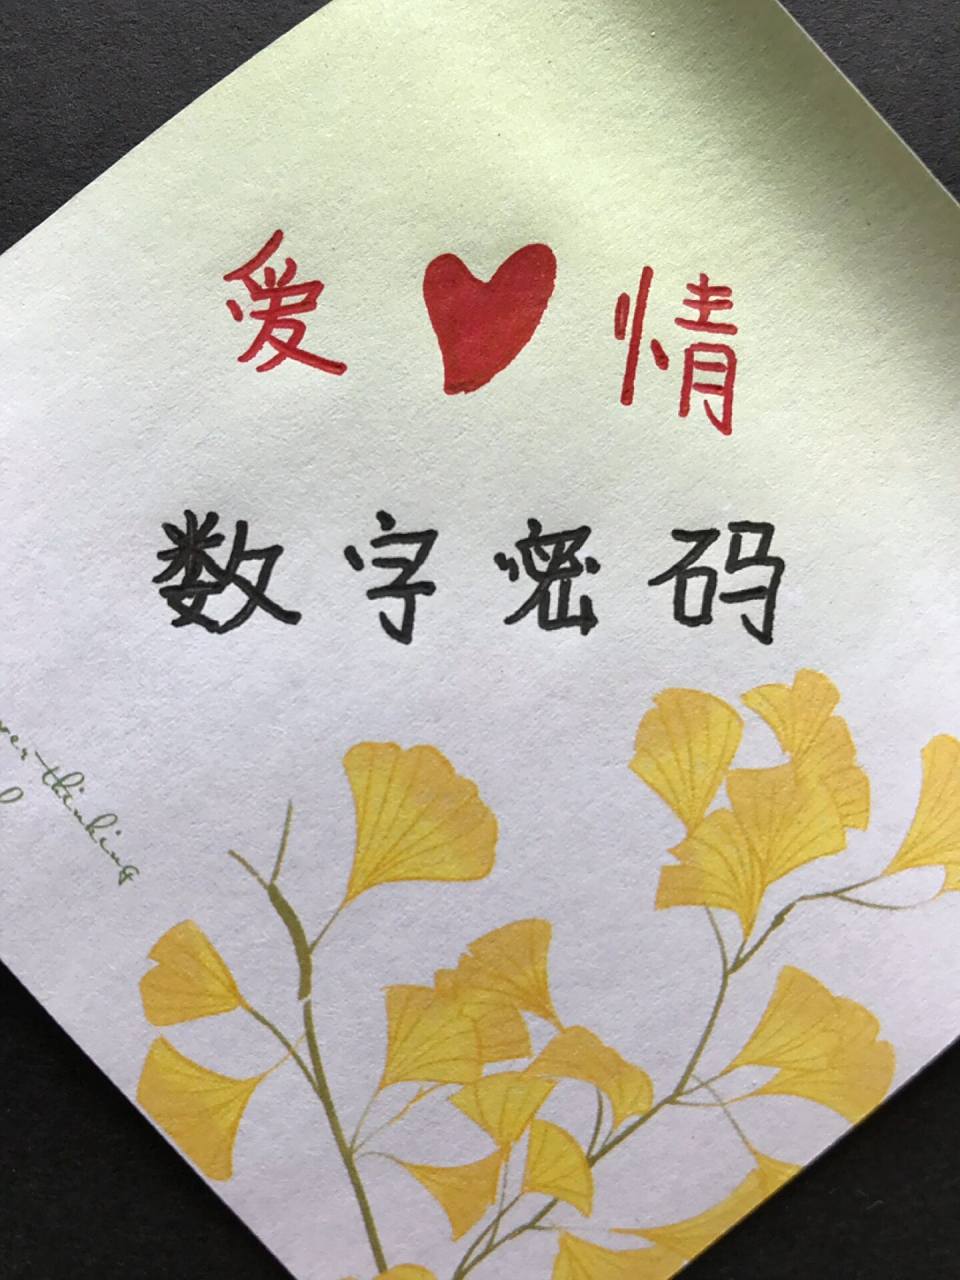 爱情
数字密码
thinking